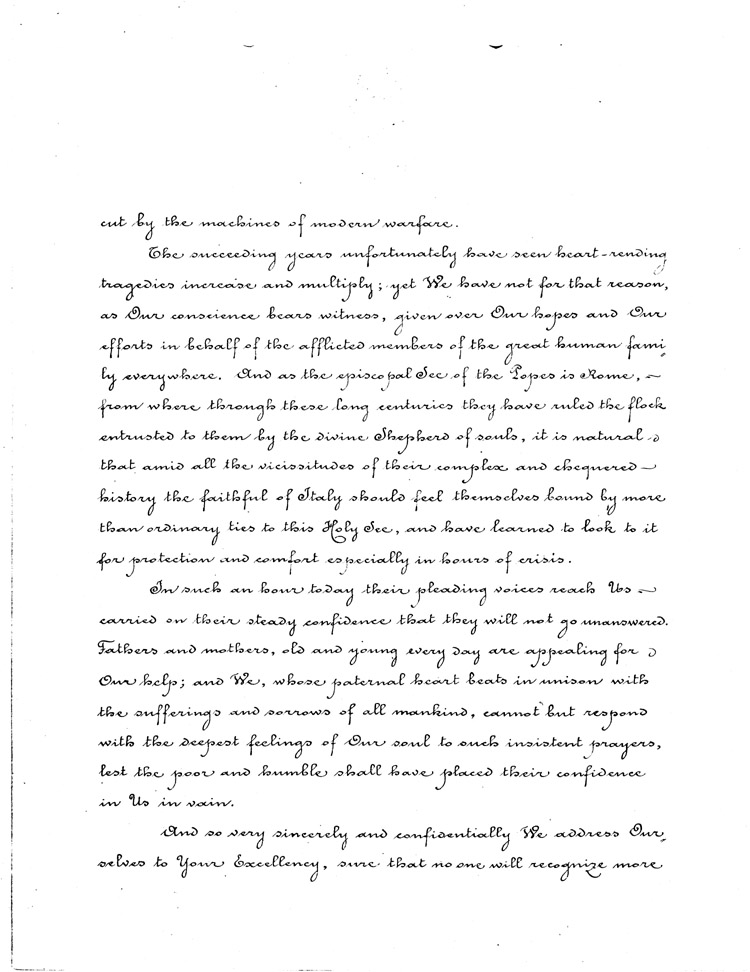 cut by the machines of modern warfare.
The succeeding years unfortunately have seen heart-rending
tragedies increase and multiply; yet We have not for that reason,
as Our conscience bears witness, given over Our hopes and Our
efforts in behalf of the afflicted members of the great human fami-
ly everywhere. And as the episcopal See of the Popes is Rome, –
from where through these long centuries they have ruled the flock
entrusted to them by the divine Shepherd of souls, it is natural
that amid all the vicissitudes of their complex and chequered –
history the faithful of Italy should feel themselves bound by more
than ordinary ties to this Holy See, and have learned to look to it
for protection and comfort especially in hours of crisis.
In such an hour today their pleading voices reach Us –
carried on their steady confidence that they will not go unanswered.
Fathers and mothers, old and young every day are appealing for
Our help; and We, whose paternal heart beats in unison with
the sufferings and sorrows of all mankind, cannot but respond
with the deepest feelings of Our soul to such insistent prayers,
lest the poor and humble shall have placed their confidence
in Us in vain.
And so very sincerely and confidentially We address Our-
selves to Your Excellency, sure that no one will recognize more